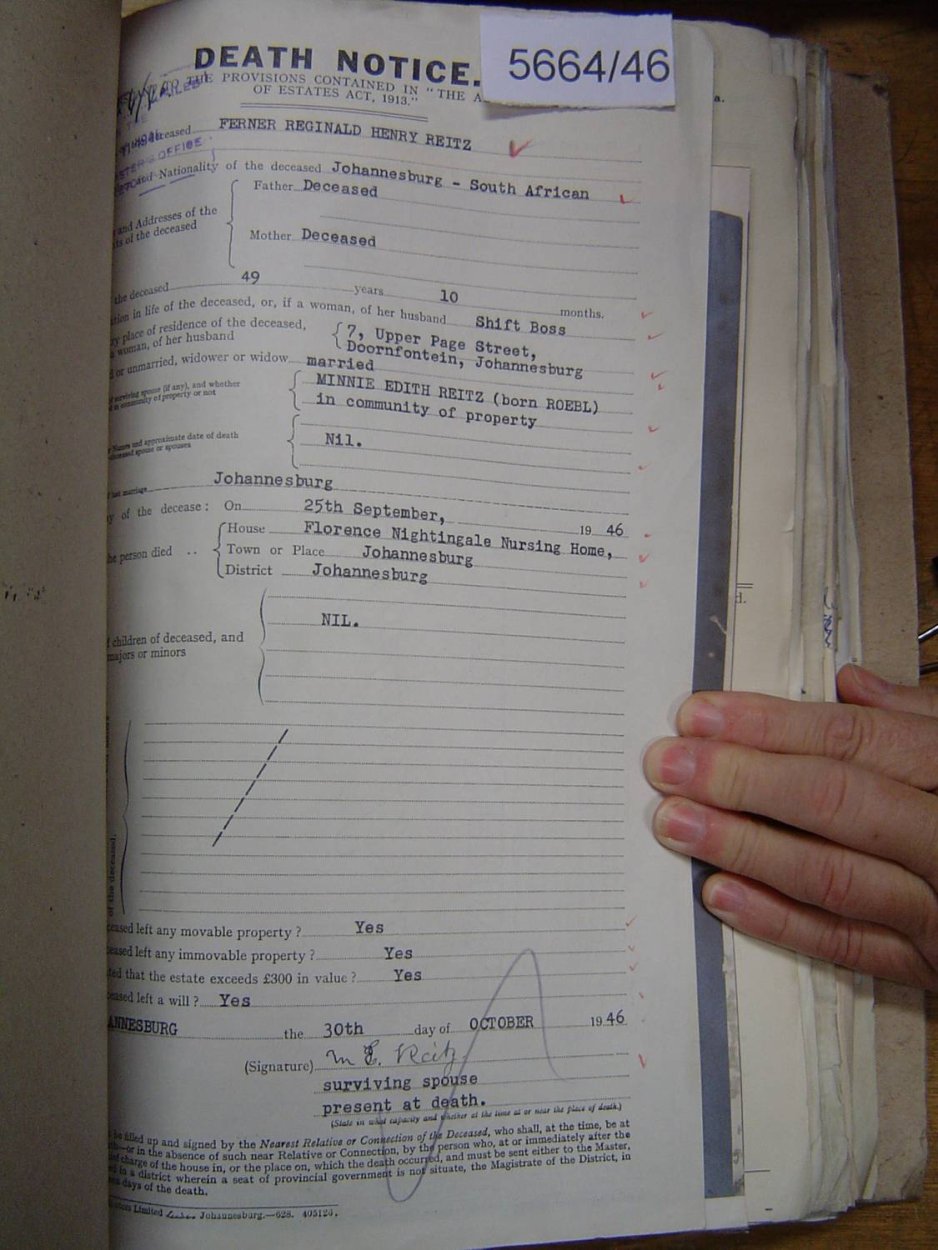 DEATH NOTICE.
5664/46
THE PROVISIONS CONTAINED IN "THE A
OF ESTATES ACT, 1913."
eceased FERNER REGINALD HENRY REITZ
OFFICE
Nationality of the deceased Johannesburg - South African
Father Deceased
and Addresses of the
ts of the deceased
Mother Deceased
the deceased 49 years 10 months.
tion in life of the deceased, or, if a woman, of her husband Shift Boss
ry place of residence of the deceased, 7, Upper Page Street,
woman, of her husband Doornfontein, Johannesburg
or unmarried, widower or widow married
surviving spouse (if any), and whether MINNIE EDITH REITZ (born ROEBL)
in community of property or not in community of property
Names and approximate date of death Nil.
deceased spouse or spouses
last marriage Johannesburg
y of the decease: On 25th September, 19 46
House Florence Nightingale Nursing Home,
he person died .. Town or Place Johannesburg
District Johannesburg
NIL.
f children of deceased, and
majors or minors
of the deceased.
eased left any movable property? Yes
eased left any immovable property? Yes
ted that the estate exceeds £300 in value? Yes
eased left a will? Yes
ANNESBURG the 30th day of OCTOBER 19 46
(Signature) M E. Reitz
surviving spouse
present at death.
(State in what capacity and whether at the time at or near the place of death.)
be filled up and signed by the Nearest Relative or Connection of the Deceased, who shall, at the time, be at
th—or in the absence of such near Relative or Connection, by the person who, at or immediately after the
charge of the house in, or the place on, which the death occurred, and must be sent either to the Master,
d in a district wherein a seat of provincial government is not situate, the Magistrate of the District, in
days of the death.
Limited Johannesburg.—628. 405120.